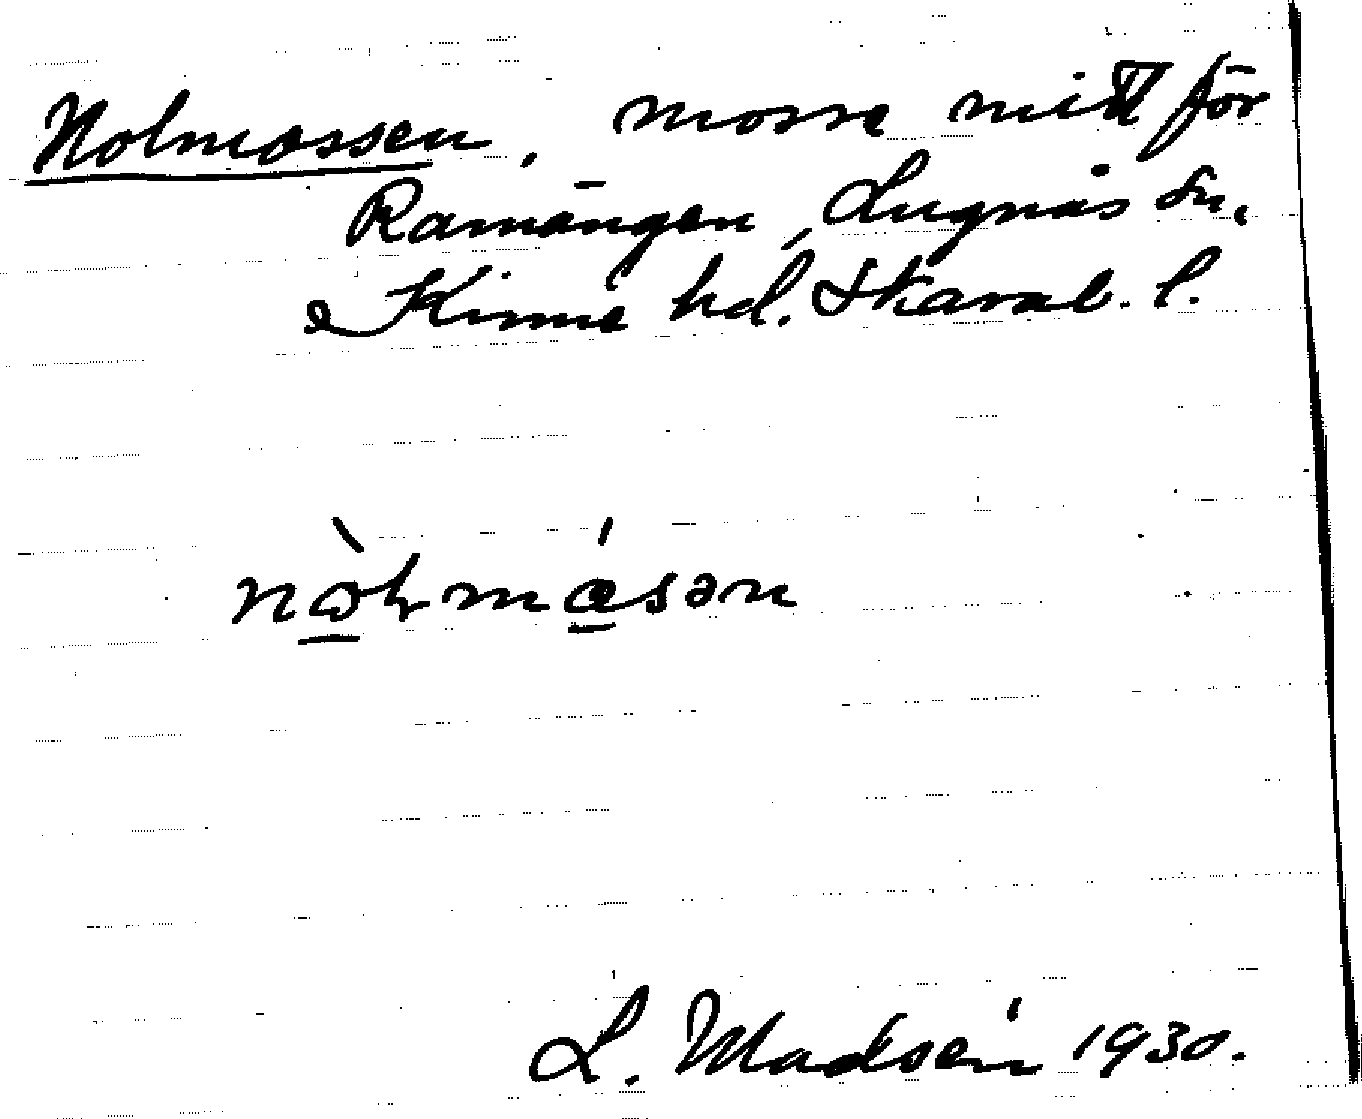 Nolmossen, mosse mitt för
Ramängen, Lugnås sn,
Kinne hd. Skarab. l.
L. Madsén 1930.